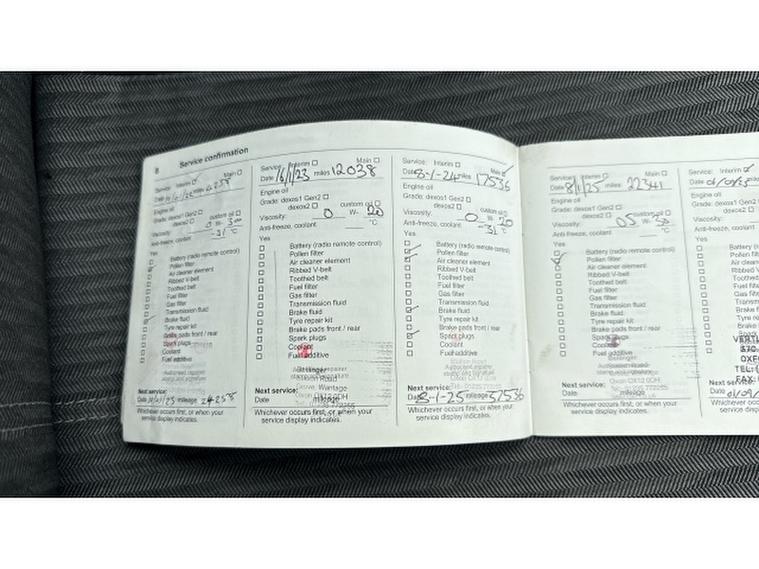 8 Service confirmation
Service: Interim Main
Date
Engine oil
Grade: dexos1 Gen2
dexos2 custom oil
Viscosity: 0 W-
Anti-freeze, coolant -31 °C
Yes
Battery (radio remote control)
Pollen filter
Air cleaner element
Ribbed V-belt
Toothed belt
Fuel filter
Gas filter
Transmission fluid
Brake fluid
Tyre repair kit
Brake pads front / rear
Spark plugs
Coolant
Fuel additive
Next service:
Date mileage 24258
Whichever occurs first, or when your
service display indicates.
Service: Interim Main
Date 16/1/23 miles 12038
Engine oil
Grade: dexos1 Gen2
dexos2 custom oil
Viscosity: 0 W- 20
Anti-freeze, coolant °C
Yes
Battery (radio remote control)
Pollen filter
Air cleaner element
Ribbed V-belt
Toothed belt
Fuel filter
Gas filter
Transmission fluid
Brake fluid
Tyre repair kit
Brake pads front / rear
Spark plugs
Coolant
Fuel additive
Wantage
Next service:
Date mileage
Whichever occurs first, or when your
service display indicates.
Service: Interim Main
Date 8-1-24 miles 17536
Engine oil
Grade: dexos1 Gen2
dexos2 custom oil
Viscosity: 0 W- 20
Anti-freeze, coolant -31 °C
Yes
Battery (radio remote control)
Pollen filter
Air cleaner element
Ribbed V-belt
Toothed belt
Fuel filter
Gas filter
Transmission fluid
Brake fluid
Tyre repair kit
Brake pads front / rear
Spark plugs
Coolant
Fuel additive
Next service:
Date 8-1-25 mileage 57536
Whichever occurs first, or when your
service display indicates.
Service: Interim Main
Date 8/1/25 miles 22341
Engine oil
Grade: dexos1 Gen2
dexos2 custom oil
Viscosity: 05 W-30
Anti-freeze, coolant °C
Yes
Battery (radio remote control)
Pollen filter
Air cleaner element
Ribbed V-belt
Toothed belt
Fuel filter
Gas filter
Transmission fluid
Brake fluid
Tyre repair kit
Brake pads front / rear
Spark plugs
Coolant
Fuel additive
Next service:
Date mileage
Whichever occurs first, or when your
service display indicates.
Service: Interim
Date
Engine oil
Grade: dexos1
dexos2
Viscosity:
Anti-freeze,
Yes
370
TEL:
FAX:
Next
Date
Whichever